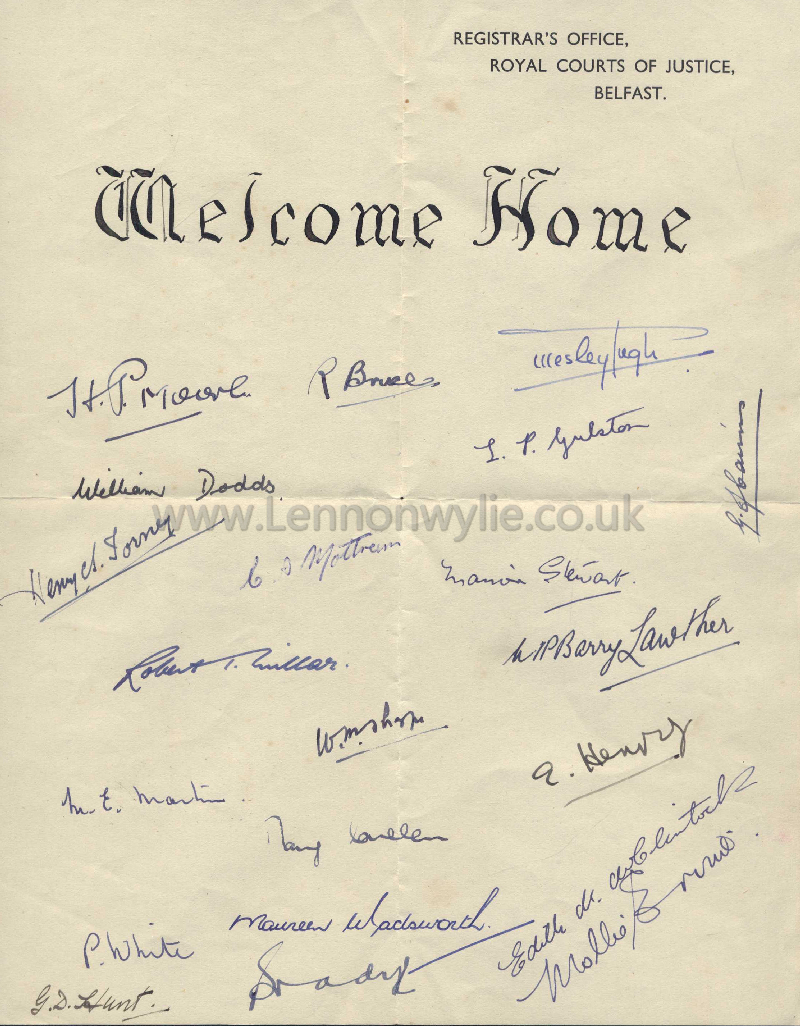 REGISTRAR'S OFFICE,
ROYAL COURTS OF JUSTICE,
BELFAST.
Welcome Home
H. P. Moore
R Bruce
Wesley Pugh
L. P. Gulston
William Dodds.
www.Lennonwylie.co.uk
Mottram
Marion Stewart.
Barry Lawther
Robert T. Millar.
A. Henry
M. E. Martin
Mary
Edith M. McClintock
Mollie
Maureen Wadsworth.
P. White
Brady
G. D. Hunt.